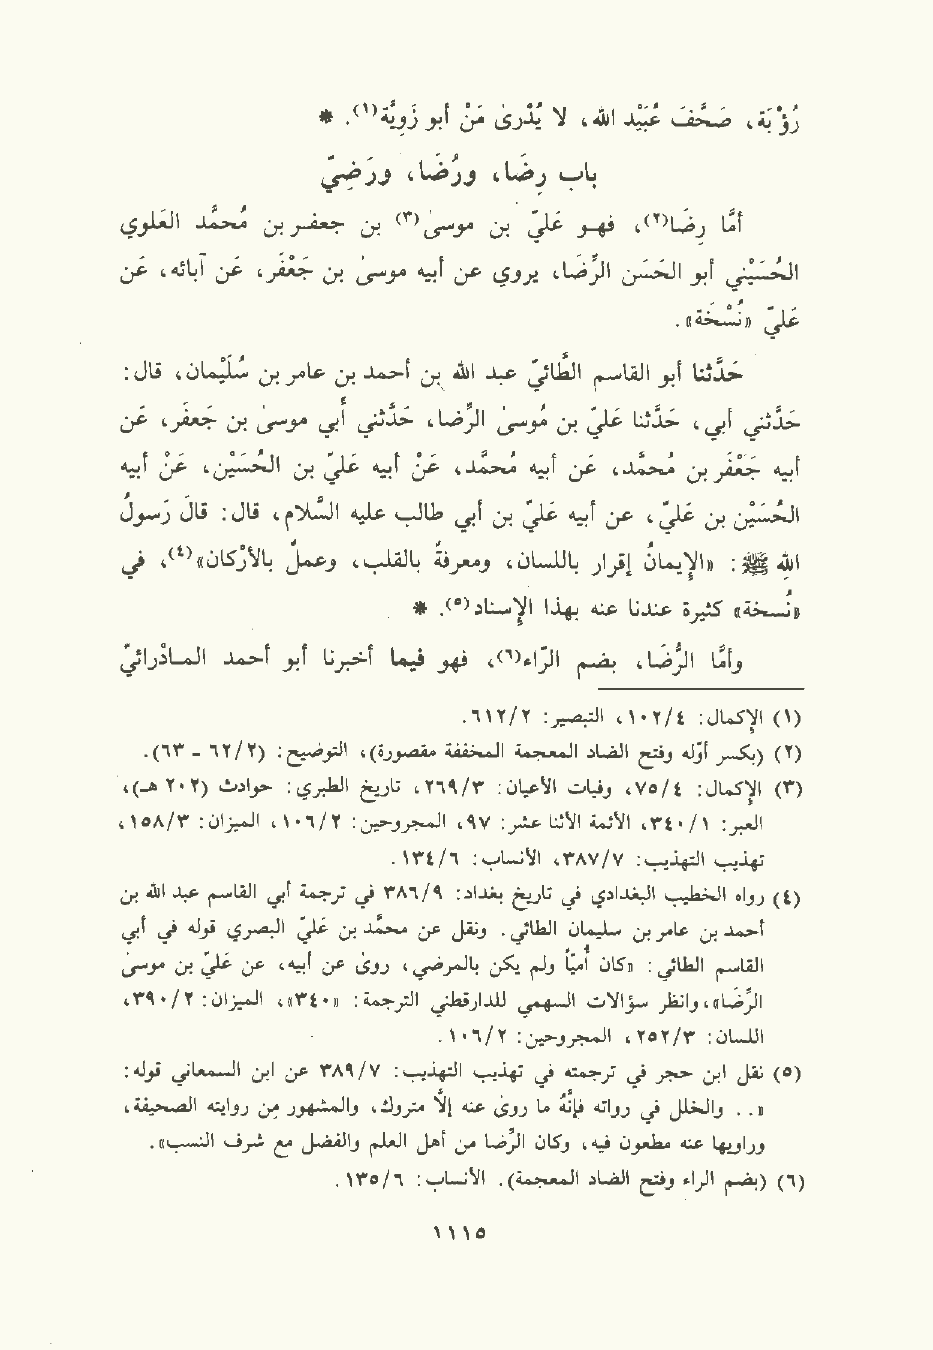 رُؤْبَة، صَحَّفَ عُبَيْد الله، لا يُدْرىٰ مَنْ أبو زَوِيَّة(١). *
باب رِضَا، ورُضَا، ورَضِيّ
أمّا رِضَا(٢)، فهـو عليّ بن موسىٰ(٣) بن جعفـر بن مُحمّد العَلَوي
الحُسَيْني أبو الحَسَن الرِّضَا، يروي عن أبيه موسىٰ بن جَعْفَر، عن آبائه، عن
عَليّ «نُسْخَة».
حَدّثنا أبو القاسم الطائيّ عبد الله بن أحمد بن عامر بن سُلَيْمان، قال:
حَدّثني أبي، حَدّثنا عليّ بن مُوسىٰ الرِّضا، حَدّثني أبي موسىٰ بن جَعفَر، عن
أبيه جَعْفَر بن مُحمّد، عن أبيه مُحمّد، عن أبيه عليّ بن الحُسَيْن، عن أبيه
الحُسَيْن بن عليّ، عن أبيه عليّ بن أبي طالب عليه السَّلام، قال: قالَ رَسولُ
اللهِ ﷺ: «الإيمانُ إقرار باللسان، ومعرفةٌ بالقلب، وعملٌ بالأرْكان»(٤)، في
«نُسخة» كثيرة عندنا عنه بهذا الإسناد(٥). *
وأمّا الرُّضَا، بضم الرّاء(٦)، فهو فيما أخبرنا أبو أحمد المـاذَرائيّ
(١) الإكمال: ١٠٢/٤، التبصير: ٦١٢/٢.
(٢) (بكسر أوّله وفتح الضاد المعجمة المخففة مقصورة)، التوضيح: (٦٢/٢ - ٦٣).
(٣) الإكمال: ٧٥/٤، وفيات الأعيان: ٢٦٩/٣، تاريخ الطبري: حوادث (٢٠٢ هـ)،
العبر: ٣٤٠/١، الأئمة الأثنا عشر: ٩٧، المجروحين: ١٠٦/٢، الميزان: ١٥٨/٣،
تهذيب التهذيب: ٣٨٧/٧، الأنساب: ١٣٤/٦.
(٤) رواه الخطيب البغدادي في تاريخ بغداد: ٣٨٦/٩ في ترجمة أبي القاسم عبد الله بن
أحمد بن عامر بن سليمان الطائي. ونقل عن محمّد بن عليّ البصري قوله في أبي
القاسم الطائي: «كان أُميّاً ولم يكن بالمرضي، روىٰ عن أبيه، عن عليّ بن موسىٰ
الرِّضَا»، وانظر سؤالات السهمي للدارقطني الترجمة: «٣٤٠»، الميزان: ٣٩٠/٢،
اللسان: ٢٥٢/٣، المجروحين: ١٠٦/٢.
(٥) نقل ابن حجر في ترجمته في تهذيب التهذيب: ٣٨٩/٧ عن ابن السمعاني قوله:
«.. والخلل في رواته فإنّهُ ما روىٰ عنه إلّا متروك، والمشهور من روايته الصحيفة،
وراويها عنه مطعون فيه، وكان الرِّضا من أهل العلم والفضل مع شرف النسب».
(٦) (بضم الراء وفتح الضاد المعجمة). الأنساب: ١٣٥/٦.
١١١٥